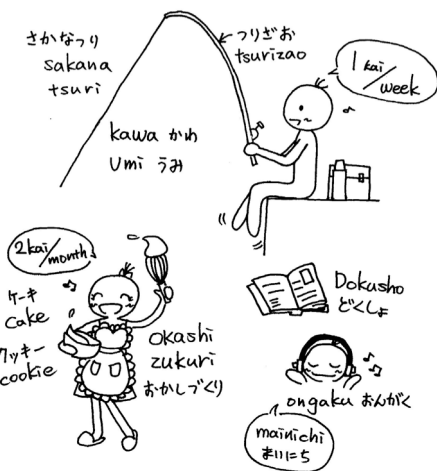 さかなつり
sakana
tsuri
←つりざお
tsurizao
1 kai
/week
kawa かわ
Umi うみ
2kai/month
ケーキ
cake
クッキー
cookie
okashi
zukuri
おかしづくり
Dokusho
どくしょ
ongaku おんがく
mainichi
まいにち